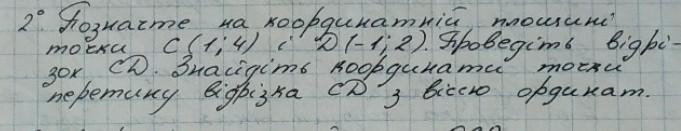 2° Позначте на координатній площині
точки C(1;4) і D(-1;2). Проведіть відрі-
зок CD. Знайдіть координати точки
перетину відрізка CD з віссю ординат.